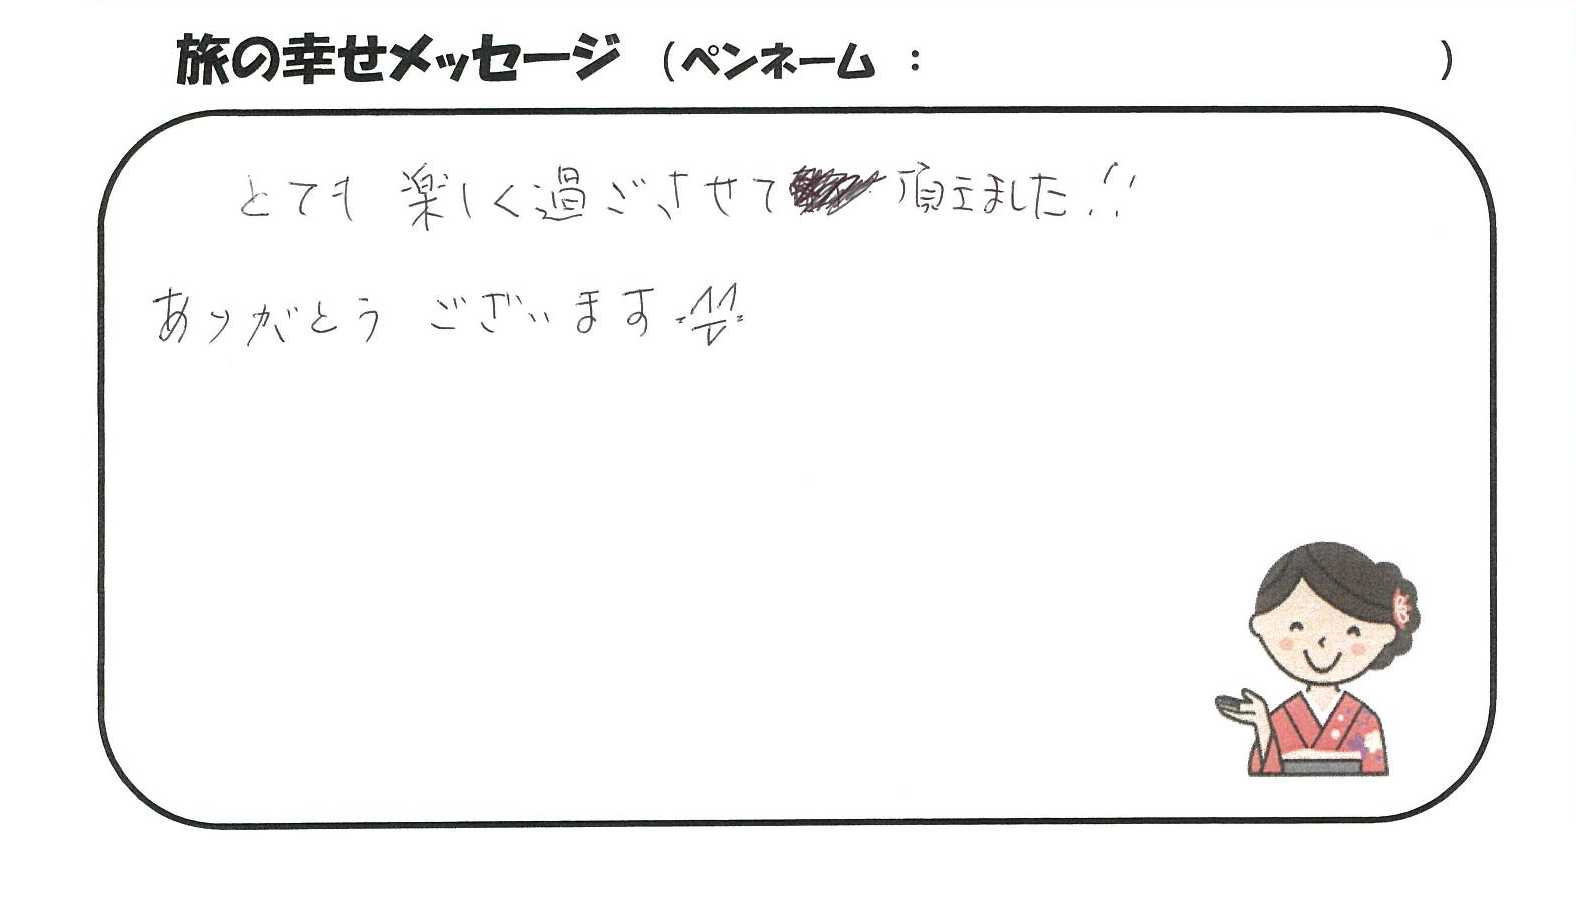 旅の幸せメッセージ （ペンネーム ： ）
とても 楽しく過ごさせて 頂えました!!
ありがとう ございます